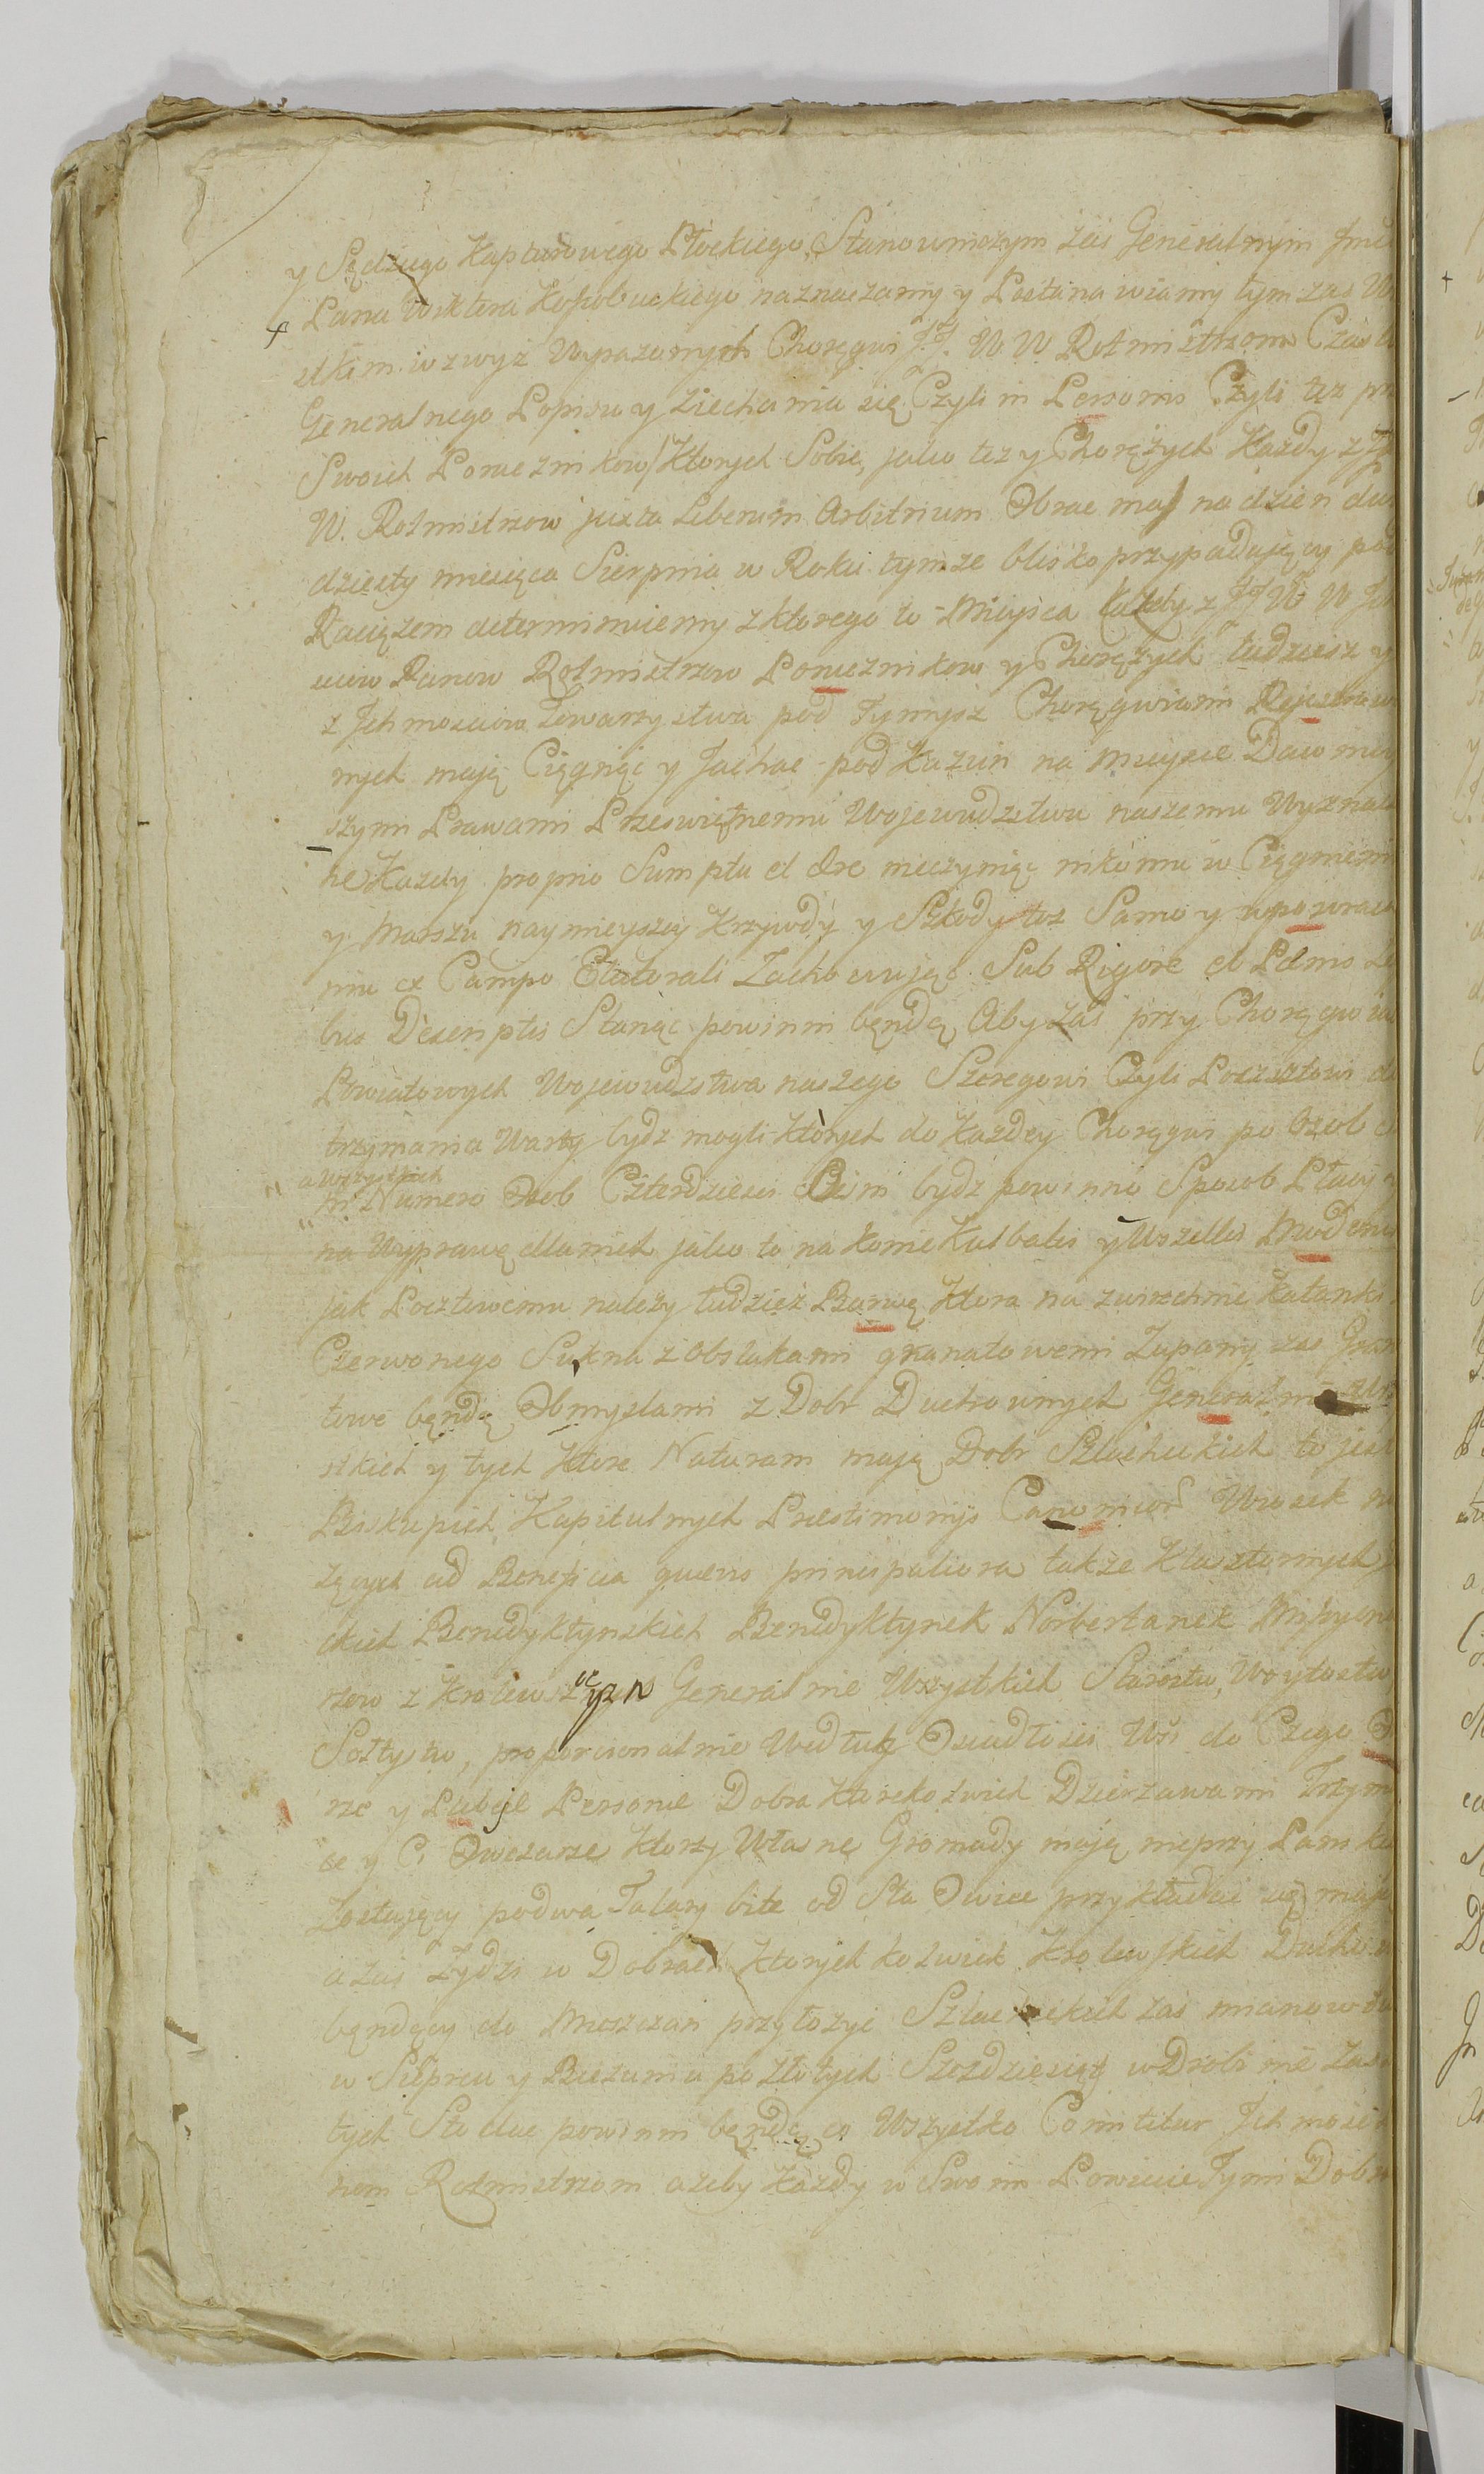 y Sędziego Kapturowego Płockiego, Stanowniczym zaś Generalnym
Pana Wiktora Kossobuckiego naznaczamy y Postanawiamy tym zaś
stkim wzwyż Wyrażonych Chorągwi J.J. W.W. Rotmistrzom Czas
Generalnego Popisu y Ziechania się Czyli in Personis Czyli tez
Swoich Porucznikow Ktorych Sobie, jako tez y Chorążych Każdy z
W. Rotmistrzow juxta Liberum Arbitrium Obrac ma na dzien
dziesty miesiąca Sierpnia w Roku tymże blisko przypadający pod
Raciążem determinuiemy z ktorego to Mieysca Każdy z JJ W W
ciow Panow Rotmistrzow Porucznikow y Chorążych tudziesz y
z Jchmosciow Towarzystwa pod Tymysz Chorągwiami
nych mają Ciągnąć y Jachac pod Kazuń na Mieysce Dawniey
szymi Prawami Prześwietnemu Wojewudztwu naszemu
ne Kazdy proprio Sumptu et Ære nieczyniąc nikomu w Ciągnieniu
y Marszu naymnieyszey Krzywdy y Szkody toz Samo y w powraca
niu ex Campo Electorali Zachowując Sub Rigore et Pœnis
bus Descriptis Stanąc powinni będą Aby zaś przy Chorągwia
Powiatowych Wojewudztwa naszego Szeregowi Czyli Pocztowi
trzymania Warty bydz mogli Ktorych do Każdey Chorągwi po Osob
a Wszystkich
in Numero Osob Czterdziesci Osm bydz powinno Sposob Płacy
na Wyprawę dla nich jako to na Konie Kulbaki y Wszelki
jak Pocztowemu należy tudzież Barwę Ktora na zwierzchnie Katanki
Czerwonego Sukna z obszlakami granatowemi Zupany zas
towe będą Obmyslami z Dobr Duchownych Generalnie
stkich y tych Ktore Naturam mają Dobr Szlacheckich to jest
Biskupich Kapitulnych Præstimonijs Wiosek
żących ad Beneficia quævis principaliora także Klasztornych
ckich Benedyktynskich Benedyktynek Norbertanek
rzow z Krolewszczyzn Generalnie Wszystkich Starostw, Woytostw
Sołtystw, proporcionalnie Według Osiadłosci Wsi do Czego
rze y Personæ Dobra Ktorekolwiek Dzierzawami
ce y Ci Owczarze Ktorzy Własne Gromady mają nieprzy
Zostający po dwa Talary bite od Sta Owiec przykładac się mają
a zaś Żydzi w Dobrach Ktorychkolwiek Krolewskich
będący do Mieszczan przyłożyc Szlacheckich zas mianowi
w Sieprcu y Biezuniu po Złotych Szezdziesiąt w Drobinie Zas
tych Sto dac powinni będą co Wszystko Comititur Jchmosc
nom Rotmistrzom azeby Każdy w Swoim Powiecie Tymi